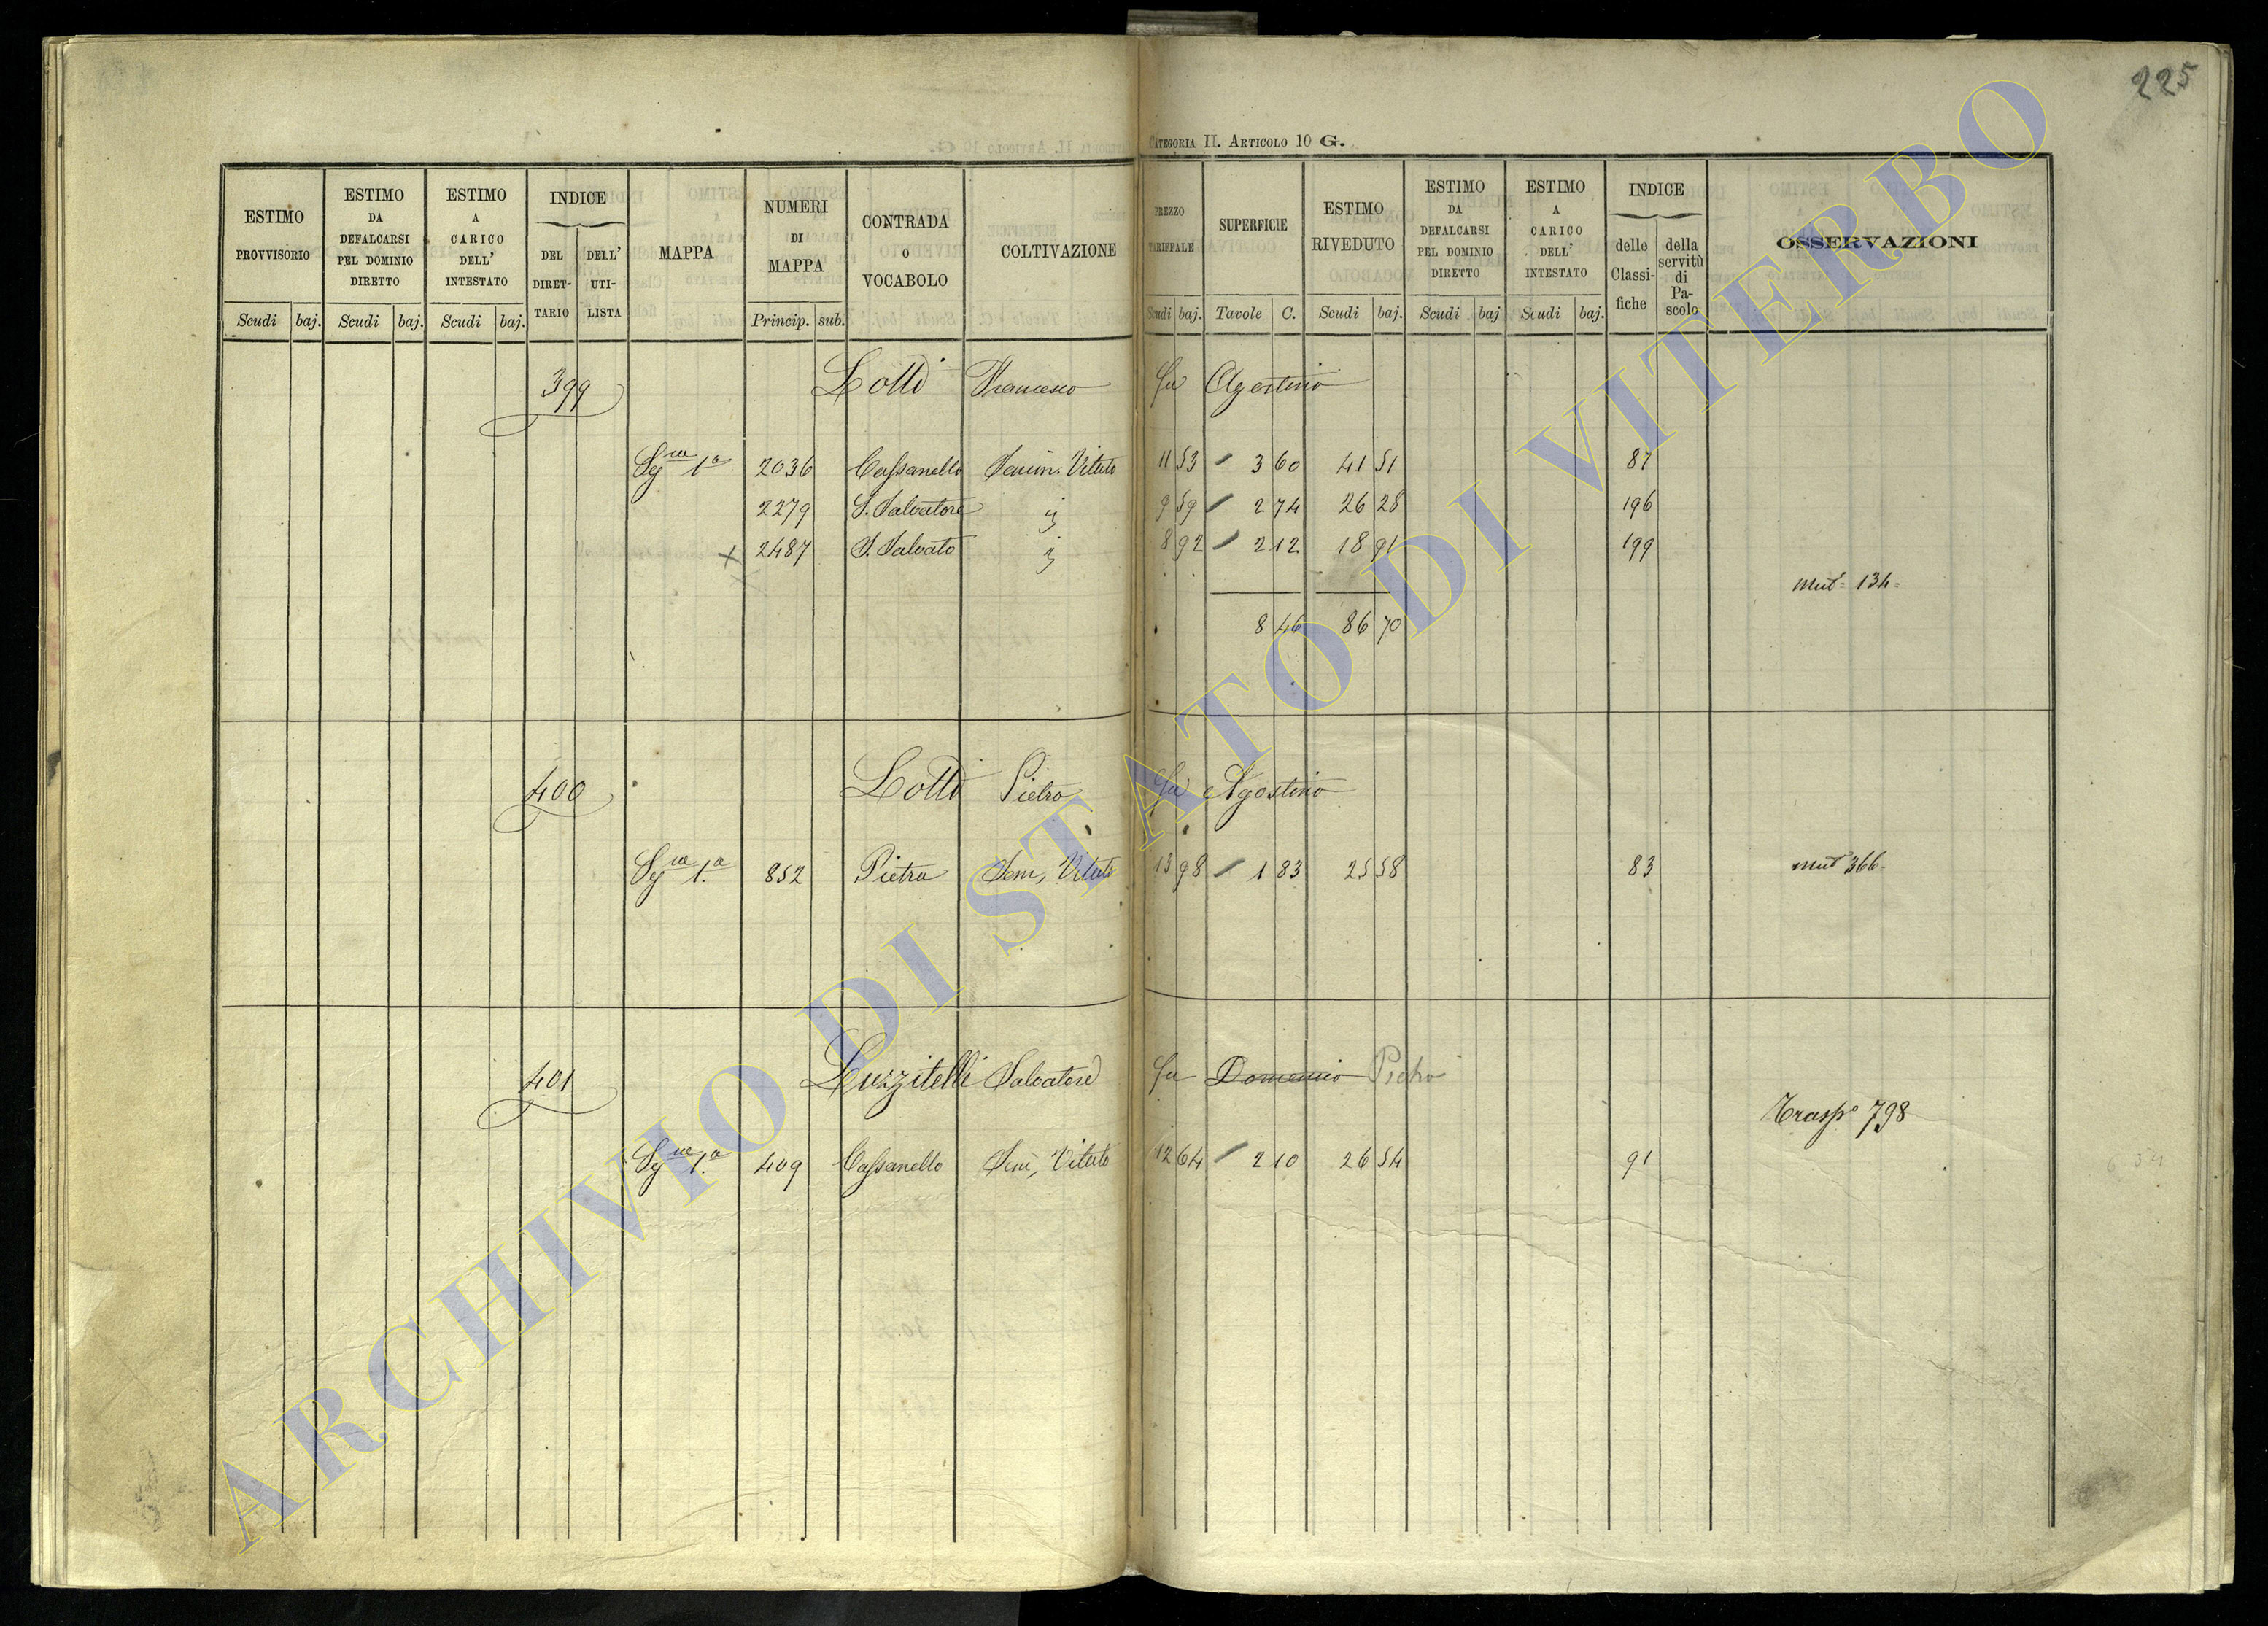 225
CATEGORIA II. ARTICOLO 10 G.
ESTIMO PROVVISORIO
Scudi baj.
ESTIMO DA DEFALCARSI PEL DOMINIO DIRETTO
Scudi baj.
ESTIMO A CARICO DELL' INTESTATO
Scudi baj.
INDICE
DEL DIRET-TARIO
DELL' UTI-LISTA
MAPPA
NUMERI DI MAPPA
Princip. sub.
CONTRADA O VOCABOLO
COLTIVAZIONE
PREZZO TARIFFALE
Scudi baj.
SUPERFICIE
Tavole C.
ESTIMO RIVEDUTO
Scudi baj.
ESTIMO DA DEFALCARSI PEL DOMINIO DIRETTO
Scudi baj
ESTIMO A CARICO DELL' INTESTATO
Scudi baj.
INDICE
delle Classi-fiche
della servitù di Pa-scolo
OSSERVAZIONI
399 Lotti Francesco fu Agostino
Sgne 1a 2036 Cassanello Semin. Vitato 11 53 / 3 60 41 51 87
2279 S. Salvatore " 9 59 / 2 74 26 28 196
x 2487 S. Salvato " 8 92 / 2 12 18 91 199
Mut= 134=
8 46 86 70
400 Lotti Pietro fu Agostino
Sgne 1.a 852 Pietra Sem, Vitato 13 98 / 1 83 25 58 83 Mut 366=
401 Luzzitelli Salvatore fu Domenico Pietro
Traspo 798
Sgne 1.a 409 Cassanello Sem, Vitato 12 64 / 2 10 26 54 91
ARCHIVIO DI STATO DI VITERBO